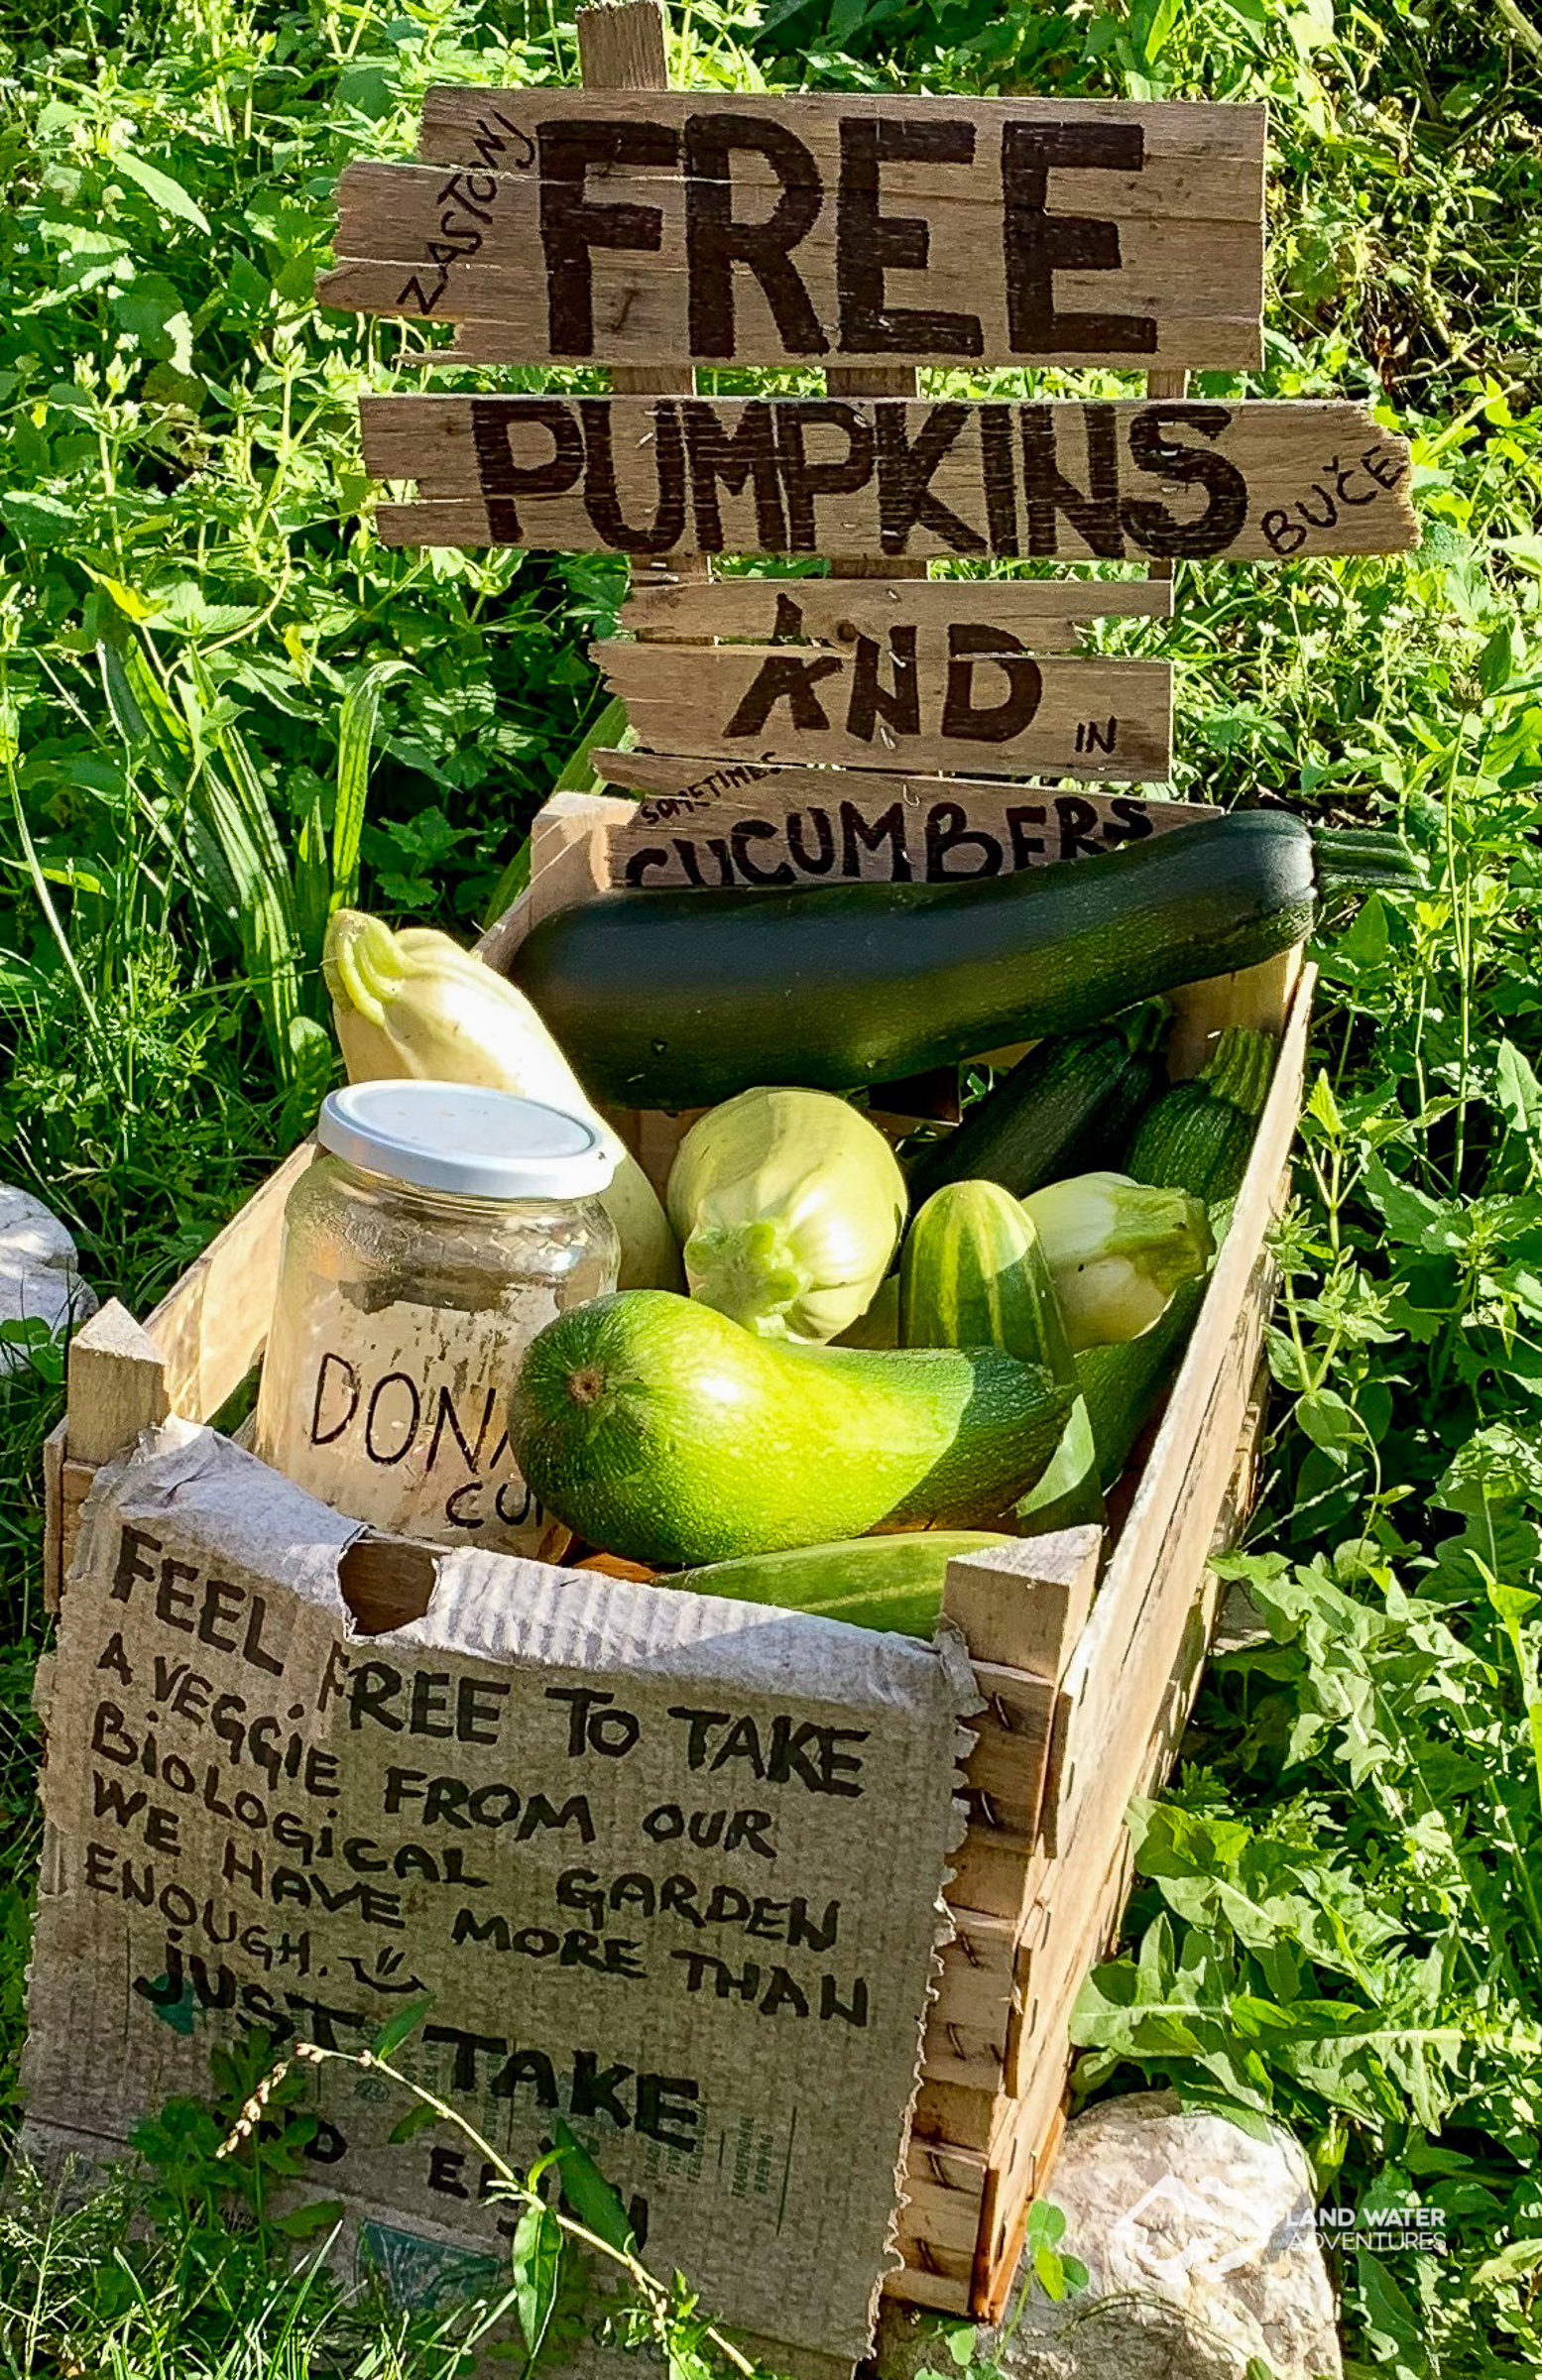 ZASTONJ
FREE
PUMPKINS
BUČE
AND
IN
SOMETIMES
CUCUMBERS
FEEL FREE TO TAKE
A VEGGIE FROM OUR
BIOLOGICAL GARDEN
WE HAVE MORE THAN
ENOUGH.
JUST TAKE
LAND WATER
ADVENTURES